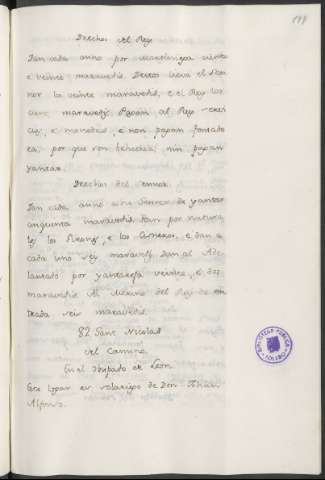 Derechos del Rey
Dan cada anno por martiniega ciento
e veinte maravedis. Destos lieva el Sen
nor los veinte maravedis, e el Rey los
cient maravedis. Pagan al Rey servi
cios, e monedas, e non pagan fonsade
ra, por que son behetria, nin pagan
yantar.
Derechos del sennor
Dan cada anno a su Sennor de yantar
cinquenta maravedis, dan por natura
les los Girones, e los Cisneros, e dan a
cada uno seis maravedis. Dan al Ade
lantado por yantareja veinte, e dos
maravedis. Al Merino del Rey de en
trada seis maravedis.
82. Sant Nicolas
del Camino
En el obispado de Leon.
Este logar es solariego de Don
Alfonso.
BIBLIOTECA PUBLICA
TOLEDO